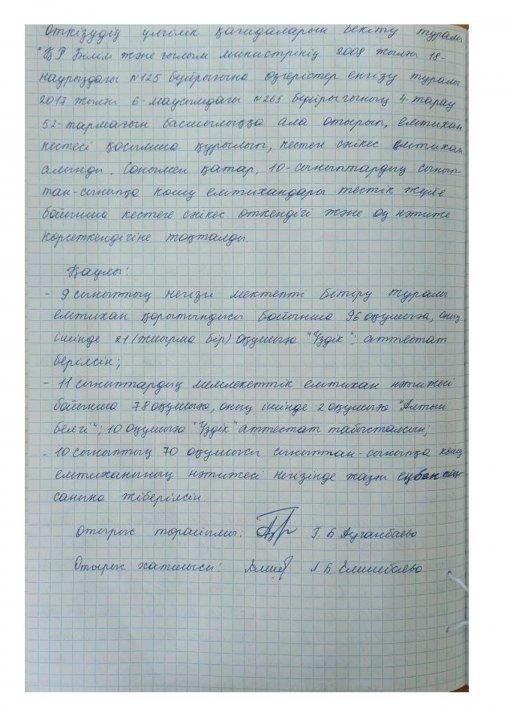 Өткізудің үлгілік қағидаларын бекіту туралы
"ҚР Білім және ғылым министрінің 2008 жылғы 18-
наурыздағы №125 бұйрығына өзгерістер енгізу туралы
2017 жылғы 6-маусымдағы №265 бұйрығының 4-тарау
52-тармағын басшылыққа ала отырып, емтихан
кестесі қосымша құрылып, кестеге сәйкес емтихан
алынды. Сонымен қатар, 10-сыныптардың сынып-
тан-сыныпқа көшу емтихандары тестік жүйе
бойынша кестеге сәйкес өткендігі және оң нәтиже
көрсеткендігіне тоқталды.
Қаулы:
- 9 сыныптың негізгі мектепті бітіру туралы
емтихан қорытындысы бойынша 96 оқушыға, оның
ішінде 21 (жиырма бір) оқушыға "Үздік" аттестат
берілсін;
- 11 сыныптардың мемлекеттік емтихан нәтижесі
бойынша 78 оқушыға, оның ішінде 2 оқушыға "Алтын
белгі"; 10 оқушыға "Үздік" аттестат табысталсын;
- 10 сыныптың 70 оқушысы сыныптан-сыныпқа көшу
емтиханының нәтижесі негізінде жазғы еңбек
санына жіберілсін
Отырыс төрайымы: Г. Б
Отырыс хатшысы: А Б Елшибаева